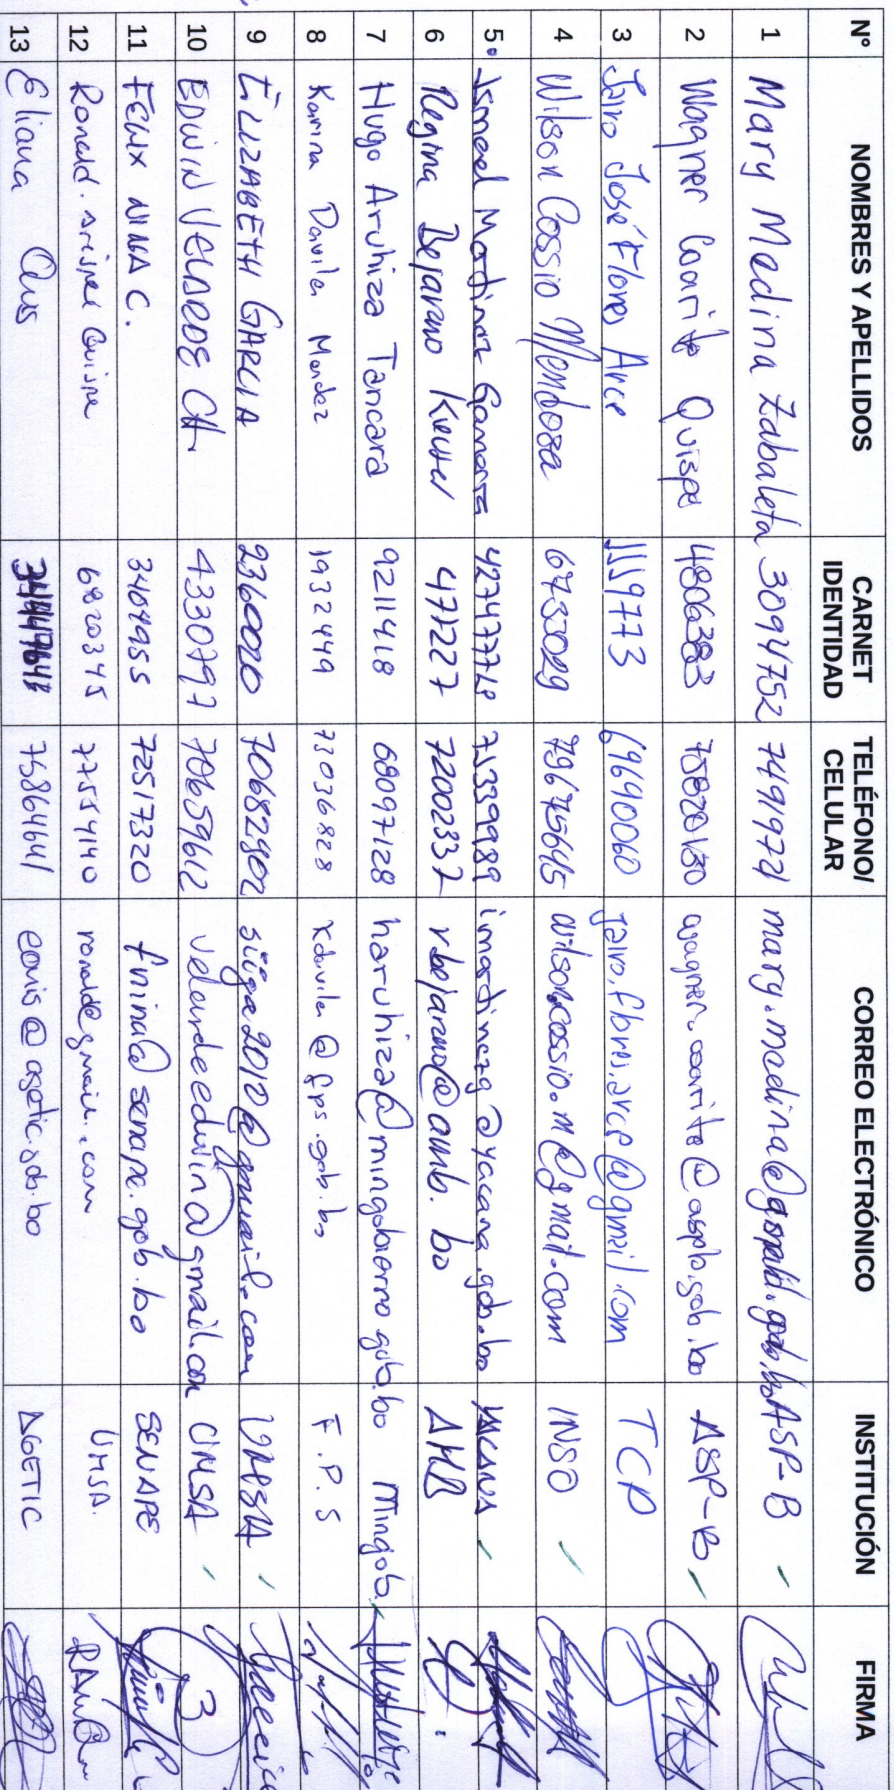 N° NOMBRES Y APELLIDOS CARNET IDENTIDAD TELÉFONO/ CELULAR CORREO ELECTRÓNICO INSTITUCIÓN FIRMA
1 Mary Medina Zabaleta 3094752 7491972 mary.medina@ ASP-B
2 Wagner Coarite Quispe 4806383 wagner.coarite@aspb.gob.bo ASP-B
3 Jairo José Flores Arce 69690060 jairo.flores.arce@gmail.com TCP
4 Wilson Cossio Mendoza wilson.cossio.m@gmail.com INSO
5 Ismael Martinez Gamarra 75339989 imartinezg@yacana.gob.bo YACANA
6 Regina Bejarano 471227 72002337 rbejarano@amb.bo AMB
7 Hugo Aruhiza Tancara 9211418 68097128 haruhiza@mingobierno.gob.bo Mingob.
8 Karina Davila Mendez 1932449 73036828 kdavila@fps.gob.bo F.P.S
9 ELIZABETH GARCIA 2360020 70682902 @gmail.com UMSA
10 EDWIN VELARDE CH. 4330797 70659612 velardeedwin@gmail.com UMSA
11 FELIX NINA C. 3404955 72517320 fnina@senape.gob.bo SENAPE
12 Ronald Quispe 6820345 77554140 UMSA.
13 Eliana 75864641 @agetic.gob.bo AGETIC